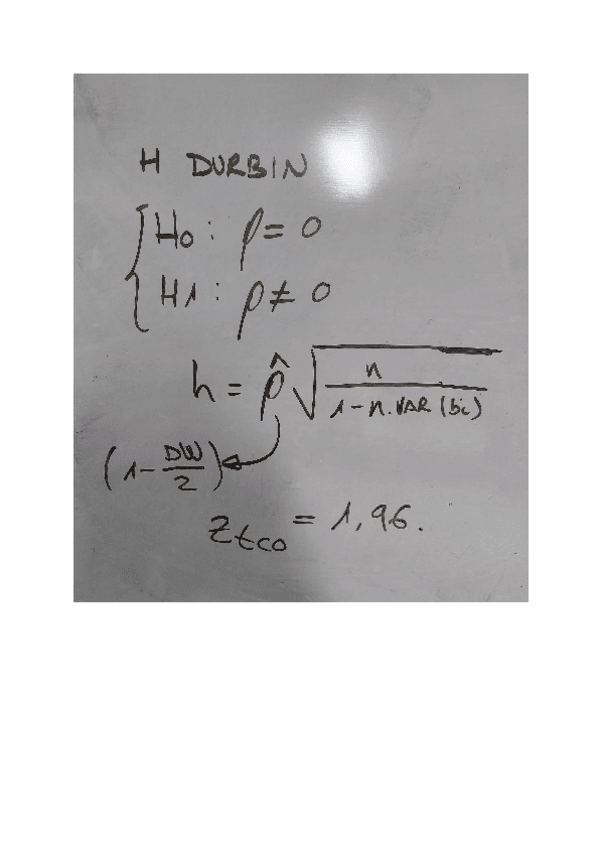 H DURBIN
H0 : ρ = 0
H1 : ρ ≠ 0
h = ρ̂ √(n / (1 - n.VAR (bi)))
(1 - DW/2)
Ztco = 1,96.